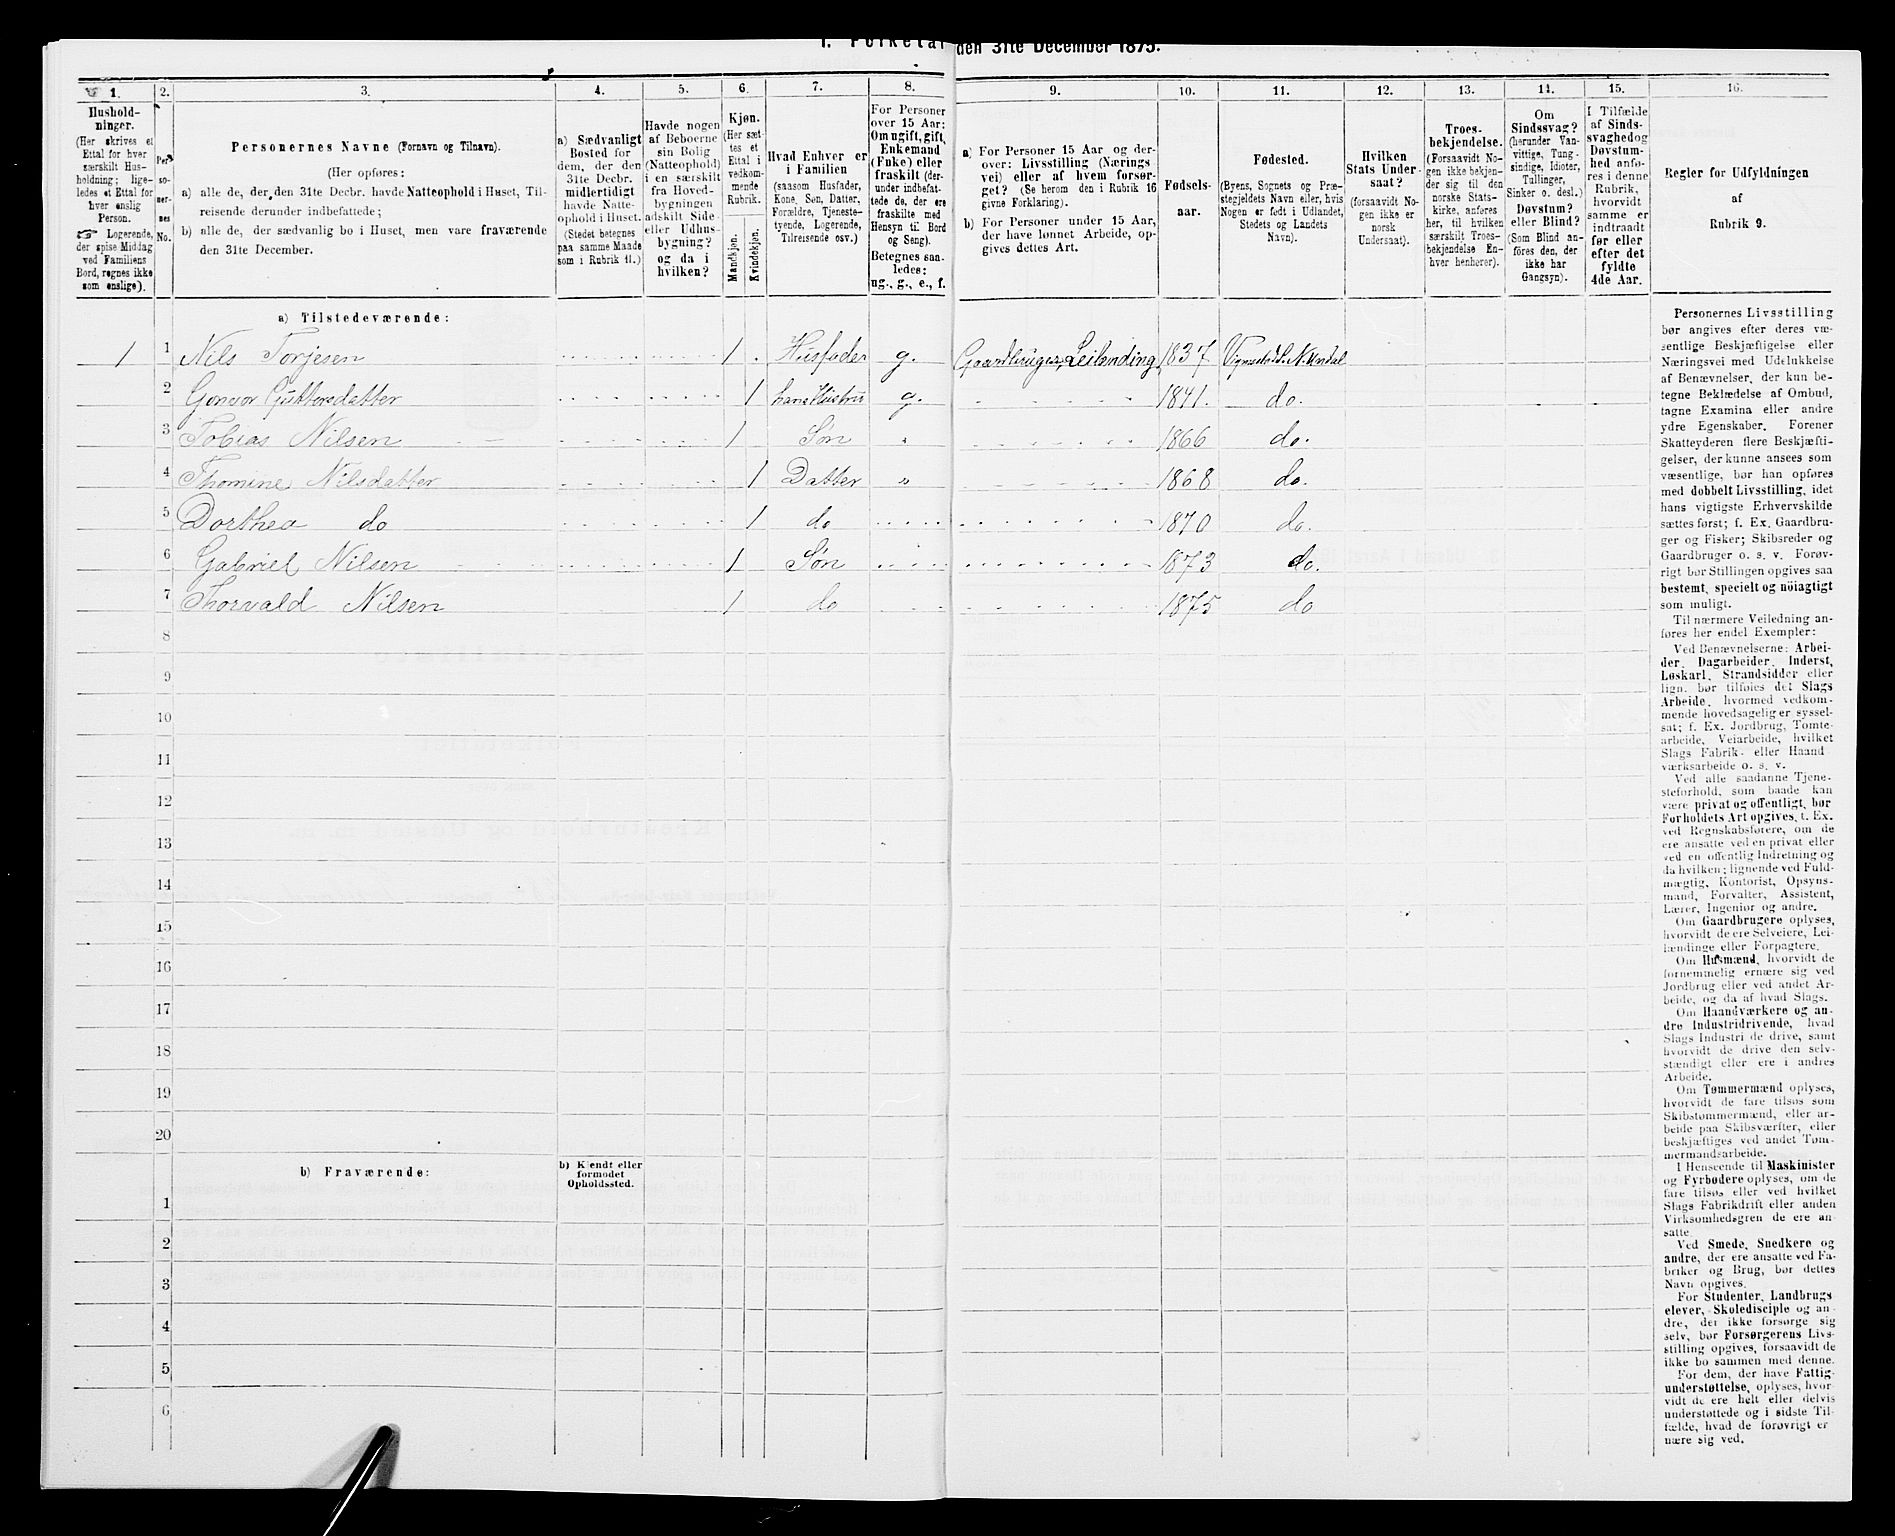 1. Folketal den 31te December 1875.
1. 2. 3. 4. 5. 6. 7. 8. 9. 10. 11. 12. 13. 14. 15. 16.
Hushold-
ninger.
(Her skrives et
Ettal for hver
særskilt Hus-
holdning; lige-
ledes et Ettal for
hver enslig
Person.
☞ Logerende,
der spise Middag
ved Familiens
Bord, regnes ikke
som enslige).
Per-
so-
ner-
nes
No.
Personernes Navne (Fornavn og Tilnavn).
(Her opføres:
a) alle de, der den 31te Decbr. havde Natteophold i Huset, Til-
reisende derunder indbefattede;
b) alle de, der sædvanlig bo i Huset, men vare fraværende
den 31te December.
a) Sædvanligt
Bosted for
dem, der den
31te Decbr.
midlertidigt
havde Natte-
ophold i Huset.
(Stedet betegnes
paa samme Maade
som i Rubrik 11.)
Havde nogen
af Beboerne
sin Bolig
(Natteophold)
i en særskilt
fra Hoved-
bygningen
adskilt Side-
eller Udhus-
bygning?
og da i
hvilken?
Kjøn.
(Her sæt-
tes et
Ettal i
vedkom-
mende
Rubrik.
Mandkjøn.
Kvindekjøn.
Hvad Enhver er
i Familien
(saasom Husfader,
Kone, Søn, Datter,
Forældre, Tjeneste-
tyende, Logerende,
Tilreisende osv.)
For Personer
over 15 Aar:
Om ugift, gift,
Enkemand
(Enke) eller
fraskilt (der-
under indbefat-
tede de, der ere
fraskilte med
Hensyn til Bord
og Seng).
Betegnes saa-
ledes:
ug., g., e., f.
a) For Personer 15 Aar og der-
over: Livsstilling (Nærings-
vei) eller af hvem forsør-
get? (Se herom den i Rubrik 16
givne Forklaring).
b) For Personer under 15 Aar,
der have lønnet Arbeide, op-
gives dettes Art.
Fødsels-
aar.
Fødested.
(Byens, Sognets og Præ-
stegjeldets Navn eller, hvis
Nogen er født i Udlandet,
Stedets og Landets
Navn).
Hvilken
Stats Under-
saat?
(forsaavidt No-
gen ikke er
norsk
Undersaat).
Troes-
bekjendelse.
(Forsaavidt No-
gen ikke bekjen-
der sig til den
norske Stats-
kirke, anføres
her, til hvilken
særskilt Troes-
bekjendelse En-
hver henhører).
Om
Sindssvag?
(herunder Van-
vittige, Tung-
sindige, Idioter,
Tullinger,
Sinker o. desl.)
Døvstum?
eller Blind?
(Som Blind an-
føres den, der
ikke har
Gangsyn).
I Tilfælde
af Sinds-
svaghed og
Døvstum-
hed anfø-
res i denne
Rubrik,
hvorvidt
samme er
indtraadt
før eller
efter det
fyldte
4de Aar.
Regler for Udfyldningen
af
Rubrik 9.
a) Tilstedeværende:
1 1 Nils Torjesen 1 Husfader g. Gaardbruger, Leilænding 1837 do.
2 Gonvor Guttorsdatter 1 hans Hustru g. 1841. do.
3 Tobias Nilsen 1 Søn 1866 do.
4 Thomine Nilsdatter 1 Datter 1868 do.
5 Dorthea do 1 do 1870 do.
6 Gabriel Nilsen 1 Søn 1873 do.
7 Thorvald Nilsen 1 do 1875 do
8
9
10
11
12
13
14
15
16
17
18
19
20
b) Fraværende:
b) Kjendt eller
formodet
Opholdssted.
1
2
3
4
5
6
Personernes Livsstilling
bør angives efter deres væ-
sentlige Beskjæftigelse eller
Næringsvei med Udelukkelse
af Benævnelser, der kun be-
tegne Beklædelse af Ombud,
tagne Examina eller andre
ydre Egenskaber. Forener
Skatteyderen flere Beskjæfti-
gelser, der kunne ansees som
væsentlige, bør han opføres
med dobbelt Livsstilling, idet
hans vigtigste Erhvervskilde
sættes først; f. Ex. Gaardbru-
ger og Fisker; Skibsreder og
Gaardbruger o. s. v. Forøv-
rigt bør Stillingen opgives saa
bestemt, specielt og nöiagtigt
som muligt.
Til nærmere Veiledning an-
føres her endel Exempler:
Ved Benævnelserne: Arbei-
der, Dagarbeider, Inderst,
Løskarl, Strandsidder eller
lign. bør tilføies det Slags
Arbeide, hvormed vedkom-
mende hovedsagelig er syssel-
sat; f. Ex. Jordbrug, Tomte-
arbeide, Veiarbeide, hvilket
Slags Fabrik- eller Haand-
værksarbeide o. s. v.
Ved alle saadanne Tjene-
steforhold, som baade kan
være privat og offentligt, bør
Forholdets Art opgives, f. Ex.
ved Regnskabsførere, om de
ere ansatte ved en privat eller
ved en offentlig Indretning og
da hvilken; lignende ved Fuld-
mægtig, Kontorist, Opsyns-
mand, Forvalter, Assistent,
Lærer, Ingeniør og andre.
Om Gaardbrugere oplyses,
hvorvidt de ere Selveiere, Lei-
lændinge eller Forpagtere.
Om Husmænd, hvorvidt de
fornemmelig ernære sig ved
Jordbrug eller ved andet Ar-
beide, og da af hvad Slags.
Om Haandværkere og an-
dre Industridrivende, hvad
Slags Industri de drive, samt
hvorvidt de drive den selv-
stændigt eller ere i andres
Arbeide.
Om Tømmermænd oplyses,
hvorvidt de fare tilsøs som
Skibstømmermænd, eller ar-
beide paa Skibsværfter, eller
beskjæftiges ved andet Tøm-
mermandsarbeide.
I Henseende til Maskinister
og Fyrbødere oplyses, om de
fare tilsøs eller ved hvilket
Slags Fabrikdrift eller anden
Virksomhedsgren de ere an-
satte.
Ved Smede, Snedkere og
andre, der ere ansatte ved Fa-
briker og Brug, bør dettes
Navn opgives.
For Studenter, Landbrugs-
elever, Skoledisciple og an-
dre, der ikke forsørge sig
selv, bør Forsørgerens Livs-
stilling opgives, forsaavidt de
ikke bo sammen med denne.
For dem, der have Fattig-
understøttelse, oplyses, hvor-
vidt de ere helt eller delvis
understøttede og i sidste Til-
fælde, hvad de forøvrigt er-
nære sig ved.